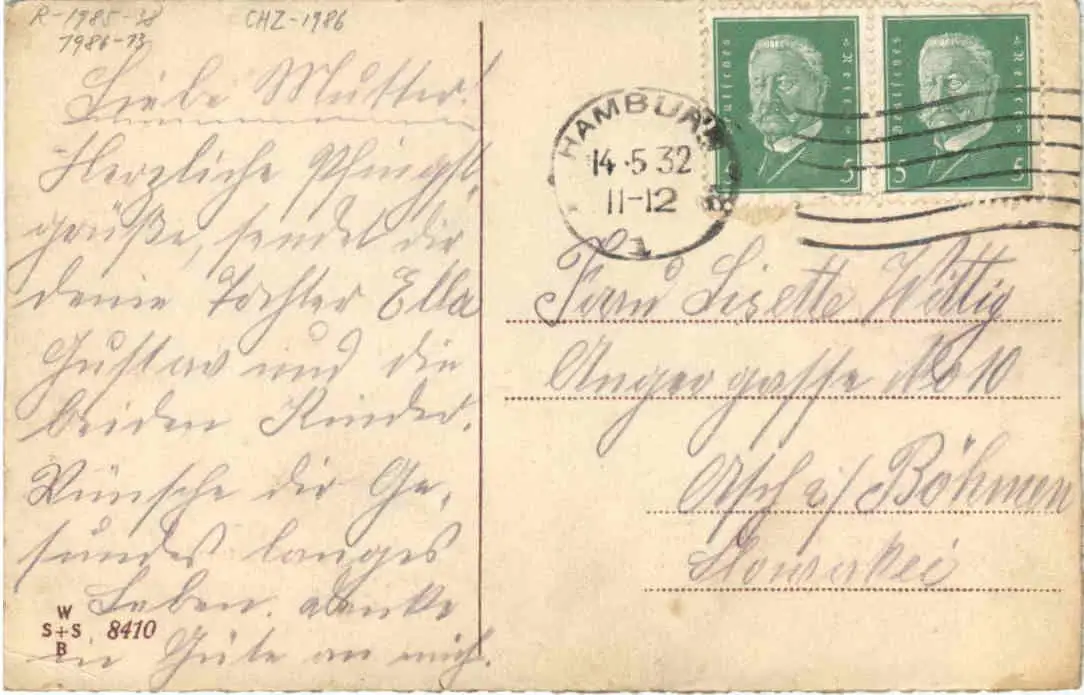 R-1985-38
1986-13
CHZ-1986
Liebe Mutter!
Herzliche Pfingst-
grüße, sendet dir
deine Tochter Ella
Gustav und die
beiden Kinder.
Wünsche dir Ge-
sundes langes
Leben. denke
in Güte an mich.
W
S+S
B
8410
Deutsches Reich
5
Deutsches Reich
5 5
HAMBURG
14.5.32
11-12
1
Frau Lisette Wittig
Angergasse No 10
Asch i/ Böhmen
Slowakei